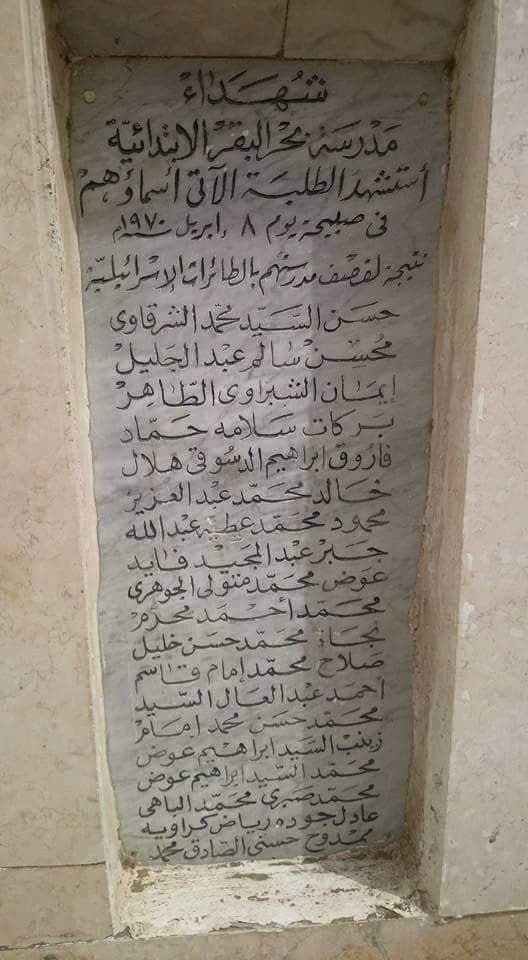 شهداء
مدرسة بحر البقر الابتدائية
أستشهد الطلبة الآتى أسماؤهم
فى صبيحة يوم ٨ إبريل سنة ١٩٧٠م
نتيجة لقصف مدرستهم بالطائرات الإسرائيلية
حسن السيد محمد الشرقاوى
محسن سالم عبد الجليل
إيمان الشبراوى الطاهر
بركات سلامه حماد
فاروق ابراهيم الدسوقى هلال
خالد محمد عبد العزيز
محمود محمد عطيه عبد الله
جبر عبد المجيد فايد
عوض محمد متولى الجوهرى
محمد أحمد محرم
نجاة محمد حسن خليل
صلاح محمد إمام قاسم
احمد عبد العال السيد
محمد حسن محمد امام
زينب السيد ابراهيم عوض
محمد السيد ابراهيم عوض
محمد صبرى محمد الباهى
عادل جوده رياض كراويه
ممدوح حسنى الصادق محمد